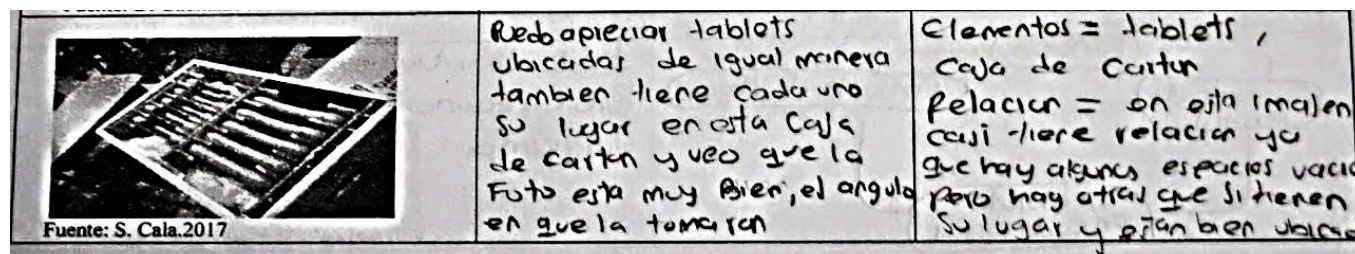 Fuente: S. Cala.2017
Puedo apreciar tablets
ubicadas de igual manera
tambien tiene cada uno
su lugar en esta Caja
de carton y veo que la
Foto esta muy Bien, el angulo
en que la tomaron
Elementos = tablets,
Caja de Carton
Relacion = en esta imagen
casi tiene relacion ya
que hay algunos espacios vacio
pero hay otras que si tienen
su lugar y estan bien ubicad